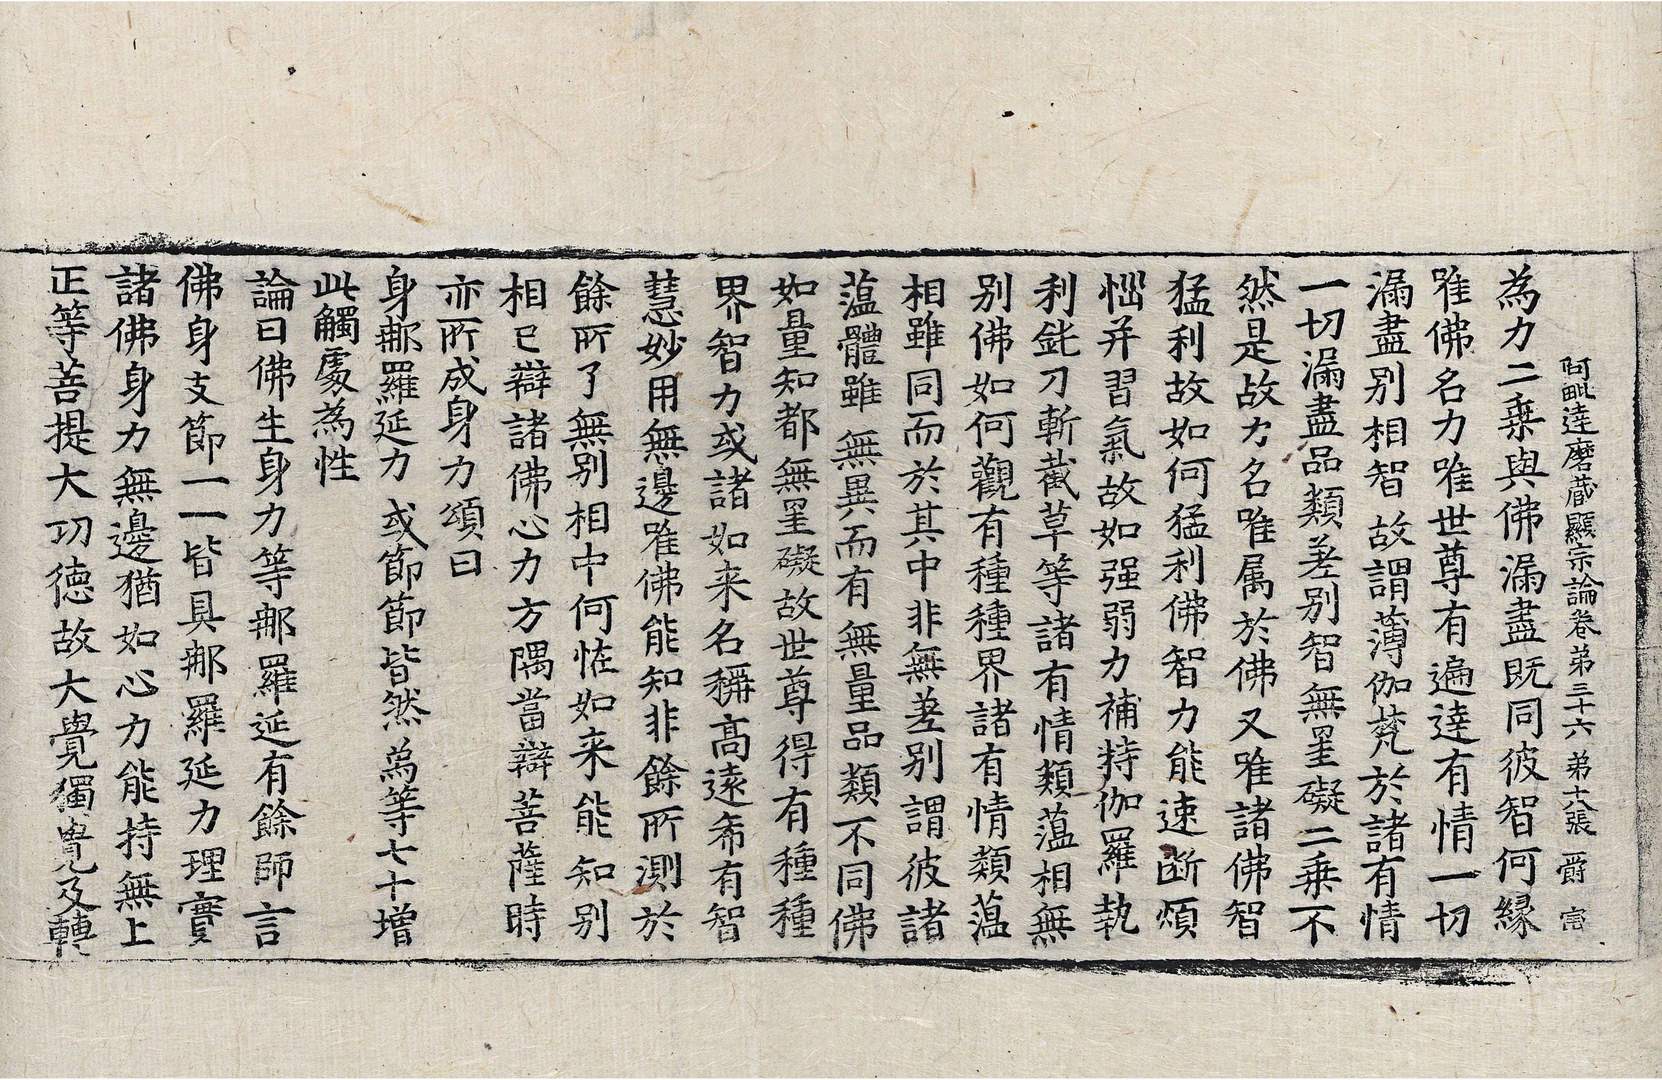 阿毗達磨藏顯宗論卷第三十六 第十八張 爵 宻
為力二乗與佛漏盡既同彼智何縁
唯佛名力唯世尊有遍達有情一切
漏盡别相智故謂薄伽梵於諸有情
一切漏盡品類差别智無罣礙二乗不
然是故力名唯属於佛又唯諸佛智
猛利故如何猛利佛智力能速断煩
惱并習氣故如强弱力補特伽羅執
利鈍刀斬截草等諸有情類蕰相無
别佛如何觀有種種界諸有情類蕰
相雖同而於其中非無差别謂彼諸
蕰體雖無異而有無量品類不同佛
如量知都無罣礙故世尊得有種種
界智力或諸如来名稱髙遠希有智
慧妙用無邊唯佛能知非餘所測於
餘所了無别相中何恠如来能知别
相已辯諸佛心力方隅當辯菩薩時
亦所成身力頌曰
身那羅延力或節節皆然為等七十增
此觸處為性
論曰佛生身力等那羅延有餘師言
佛身支節一一皆具那羅延力理實
諸佛身力無邊猶如心力能持無上
正等菩提大功德故大覺獨覺及轉